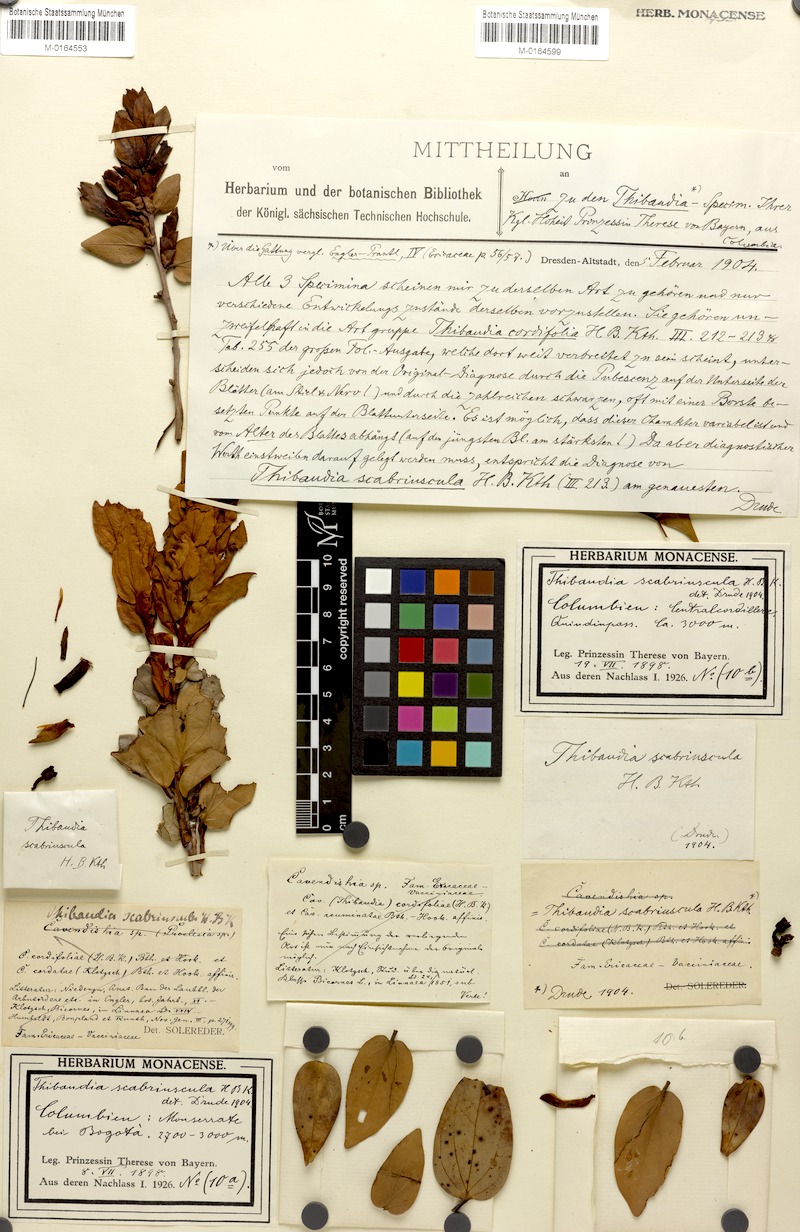 Botanische Staatssammlung München
M-0164553
Botanische Staatssammlung München
M-0164599
HERB. MONACENSE
MITTHEILUNG
vom
Herbarium und der botanischen Bibliothek
der Königl. sächsischen Technischen Hochschule.
an
zu den Thibaudia*) - Specim. Ihrer
Kgl. Hoheit Prinzessin Therese von Bayern, aus
Columbia.
*) Über die Gattung vergl. Engler-Prantl, IV (Ericaceae p 56/57.)
Dresden-Altstadt, den 5 Februar 1904.
Alle 3 Specimina scheinen mir zu derselben Art zu gehören und nur
verschiedene Entwickelungszustände derselben vorzustellen. Sie gehören un-
zweifelhaft in die Artgruppe Thibaudia cordifolia H. B. Kth. III. 212-213 &
Tab. 255 der großen Fol.-Ausgabe, welche dort weit verbreitet zu sein scheint, unter-
scheiden sich jedoch von der Original-Diagnose durch die Pubescenz auf der Unterseite der
Blätter (am Stiel & Nerv!) und durch die zahlreichen schwarzen, oft mit einer Borste be-
setzten Punkte auf der Blattunterseite. Es ist möglich, dass dieser Charakter variabel ist und
vom Alter des Blattes abhängt (auf den jüngsten Bl. am stärksten!) Da aber diagnostischer
Werth einstweilen darauf gelegt werden muss, entspricht die Diagnose von
Thibaudia scabriuscula H. B. Kth (III. 213.) am genauesten.
Drude
HERBARIUM MONACENSE.
Thibaudia scabriuscula H. B. K.
det. Drude 1904.
Columbien: Centralcordillere,
Quindiupass. Ca. 3000 m.
Leg. Prinzessin Therese von Bayern.
19. VII. 1898.
Aus deren Nachlass I. 1926. No (10 b).
copyright reserved
0 1 2 3 4 5 6 7 8 9 10
cm
Thibaudia scabriuscula
H. B. Kth
(Drude.)
1904.
Thibaudia
scabriuscula
H. B. Kth
Thibaudia scabriuscula H. B K
Cavendishia sp. (Proclesia sp.)
C. cordifoliae (H. B. K.) Bth. et Hook. et
C. cordatae (Klotzsch) Bth. et Hook. affin.
Det. SOLEREDER.
Fam: Ericaceae - Vacciniaceae
Cavendishia sp. Fam. Ericaceae -
Vacciniaceae
Cav. (Thibaudia) cordifoliae (H. B. K)
et Cav. acuminatae Bth. - Hook. affinis
möglich.
Verte!
Cavendishia sp.
= Thibaudia scabriuscula H. B Kth *)
C. cordifoliae (H. B. K.) Bth. et Hook. et
C. cordatae (Klotzsch) Bth. et Hook affin.
Fam. Ericaceae - Vacciniaceae.
*) Drude 1904.
Det. SOLEREDER.
HERBARIUM MONACENSE.
Thibaudia scabriuscula H B K
det. Drude 1904
Columbien: Monserrate
bei Bogotá. 2700 - 3000 m.
Leg. Prinzessin Therese von Bayern.
8. VII. 1898.
Aus deren Nachlass I. 1926. No (10 a).
10. b